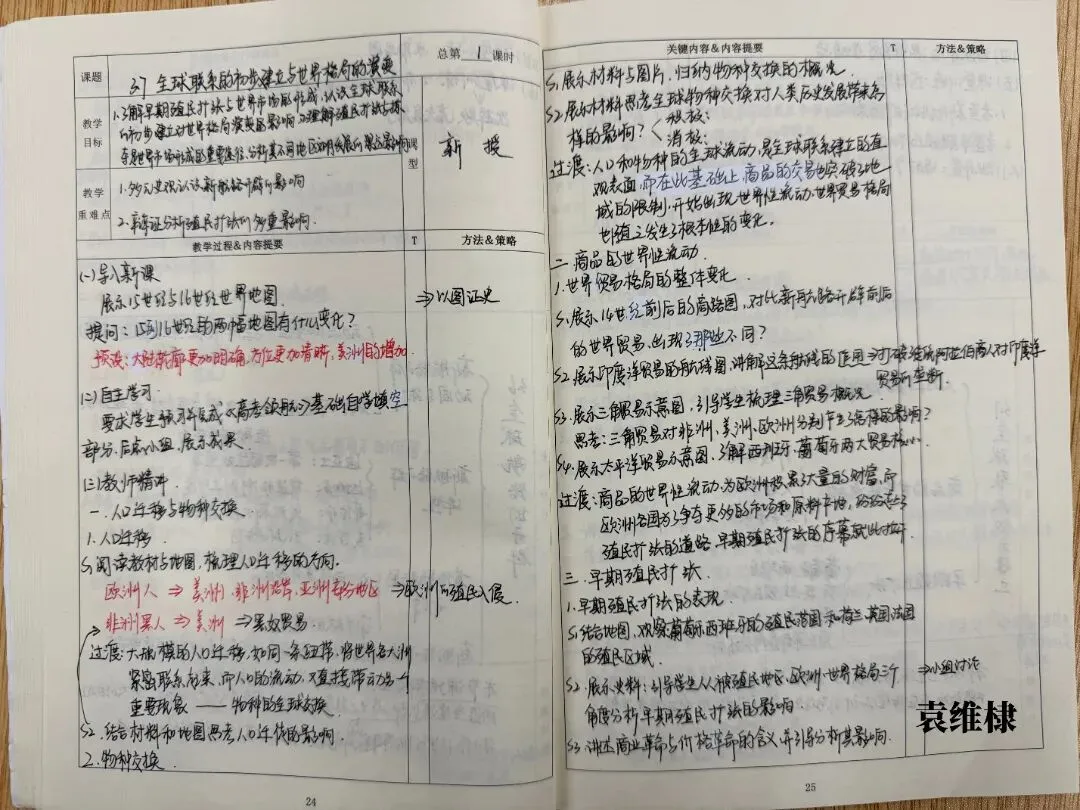 课题
3.7 全球联系的初步建立与世界格局的演变
总第 1 课时
教学目标
1.了解早期殖民扩张与世界市场的形成，认识全球联系
的初步建立对世界格局演变的影响。2.理解殖民扩张与掠
夺是世界市场形成的重要途径，分析其不同地区文明发展的
课型
新授
教学重难点
1.多元史观认识新航路开辟的影响
2.辩证分析殖民扩张的多重影响.
教学过程&内容提要
T
方法&策略
(一)导入新课
展示15世纪与16世纪世界地图.
⇒以图证史
提问：15到16世纪的两幅地图有什么变化？
预设：大陆轮廓更加明确,方位更加清晰,美洲的增加
(二)自主学习.
要求学生预习并完成《高考领航》基础自学填空
部分,后点小组,展示成果.
(三)教师精讲.
一.人口迁移与物种交换.
1.人口迁移.
S1阅读教材与地图,梳理人口迁移的方向.
欧洲人 ⇒ 美洲、非洲沿岸、亚洲部分地区 ⇒欧洲的殖民入侵.
非洲黑人 ⇒ 美洲 ⇒黑奴贸易
过渡:大规模的人口迁移,如同一条纽带,将世界各大洲
紧密联系起来,而人口的流动,又直接带动另一
重要现象 —— 物种的全球交换.
S2.结合材料和地图思考人口迁移的影响.
2.物种交换.
24
关键内容&内容提要
T
方法&策略
S1.展示材料与图片,归纳物种交换的概况
S2.展示材料思考全球物种交换对人类历史发展带来怎
样的影响？
积极:
消极:
过渡:人口和物种的全球流动,是全球联系建立的直
观表面,而在此基础上,商品的交易也突破了地
域的限制,开始出现世界性流动.世界贸易格局
也随之发生了根本性的变化.
二.商品的世界性流动.
1.世界贸易格局的整体变化.
S1.展示14世纪前后的商路图,对比新航路开辟前后
的世界贸易,出现了那些不同？
S2.展示印度洋贸易的航线图,讲解这条航线的作用⇒打破往阿拉伯商人对印度洋
贸易的垄断.
S3.展示三角贸易示意图,引导学生梳理三角贸易概况.
思考:三角贸易对非洲、美洲、欧洲分别产生了怎样的影响？
S4.展示太平洋贸易示意图,了解西班牙、葡萄牙两大贸易核心
过渡:商品的世界性流动,为欧洲积累大量的财富,而
欧洲各国为了争夺更多的市场和原料产地,纷纷走上了
殖民扩张的道路,早期殖民扩张的序幕就此拉开
三.早期殖民扩张.
1.早期殖民扩张的表现.
S1结合地图,观察葡萄牙西班牙的殖民范围和荷兰英国法国
的殖民区域.
S2.展示史料:引导学生从被殖民地区、欧洲、世界格局三个
角度分析早期殖民扩张的影响
⇒小组讨论
S3.讲述商业革命与价格革命的含义,并引导分析其影响.
袁维棣
25